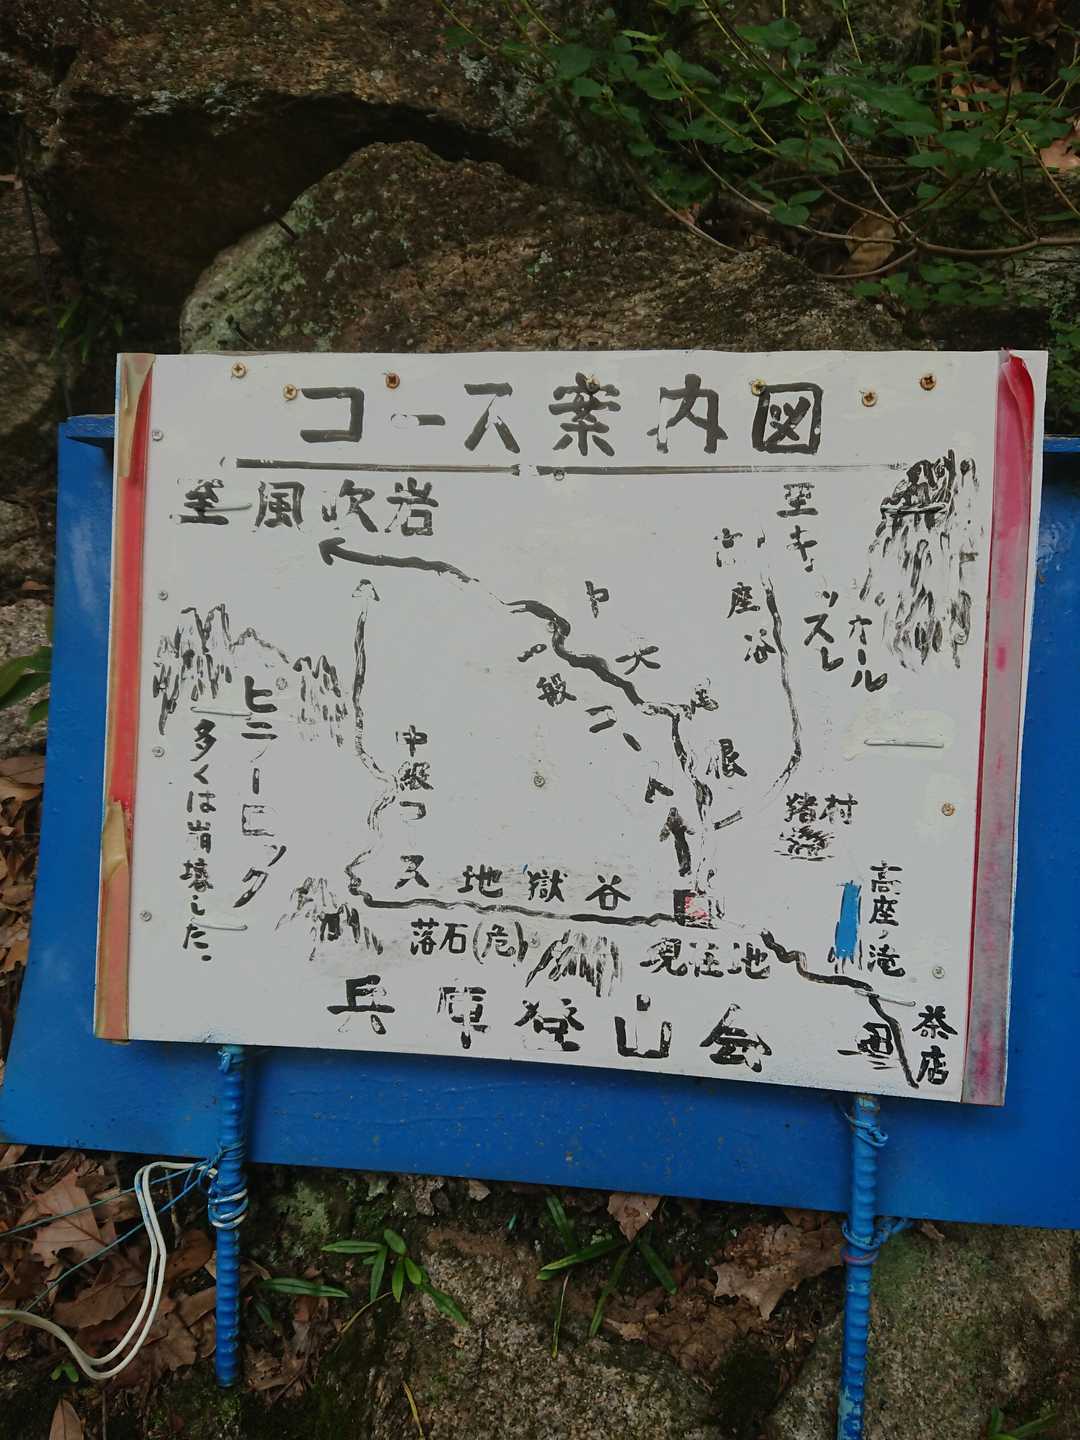 コース案内図
至風吹岩
至キャッスルウォール
高座谷
大
一般
尾根
中級コース
ピラーロック
多くは崩壊した。
猪村
地獄谷
高座ノ滝
落石(危)
現在地
茶店
兵庫登山会